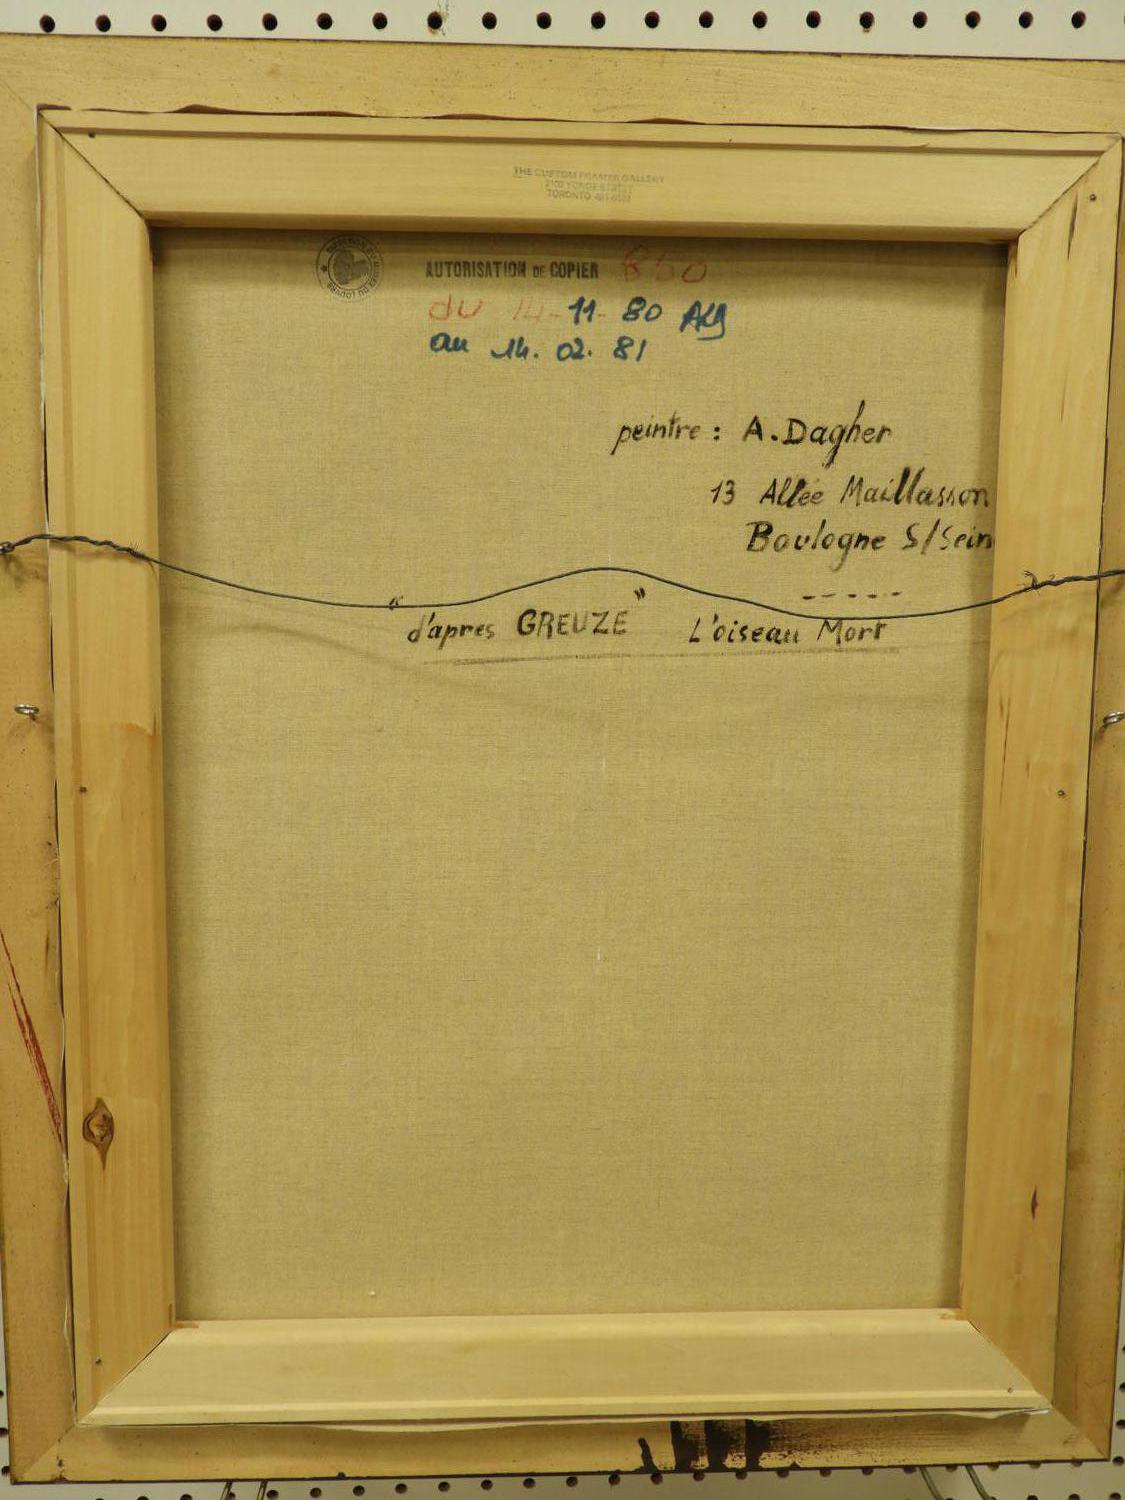 THE CUSTOM FRAMER GALLERY
TORONTO
AUTORISATION DE COPIER 850
du 14-11-80
au 14.02.81
peintre: A.Dagher
13 Allée Maillasson
Boulogne S/Sein
"d'apres GREUZE" L'oiseau Mort